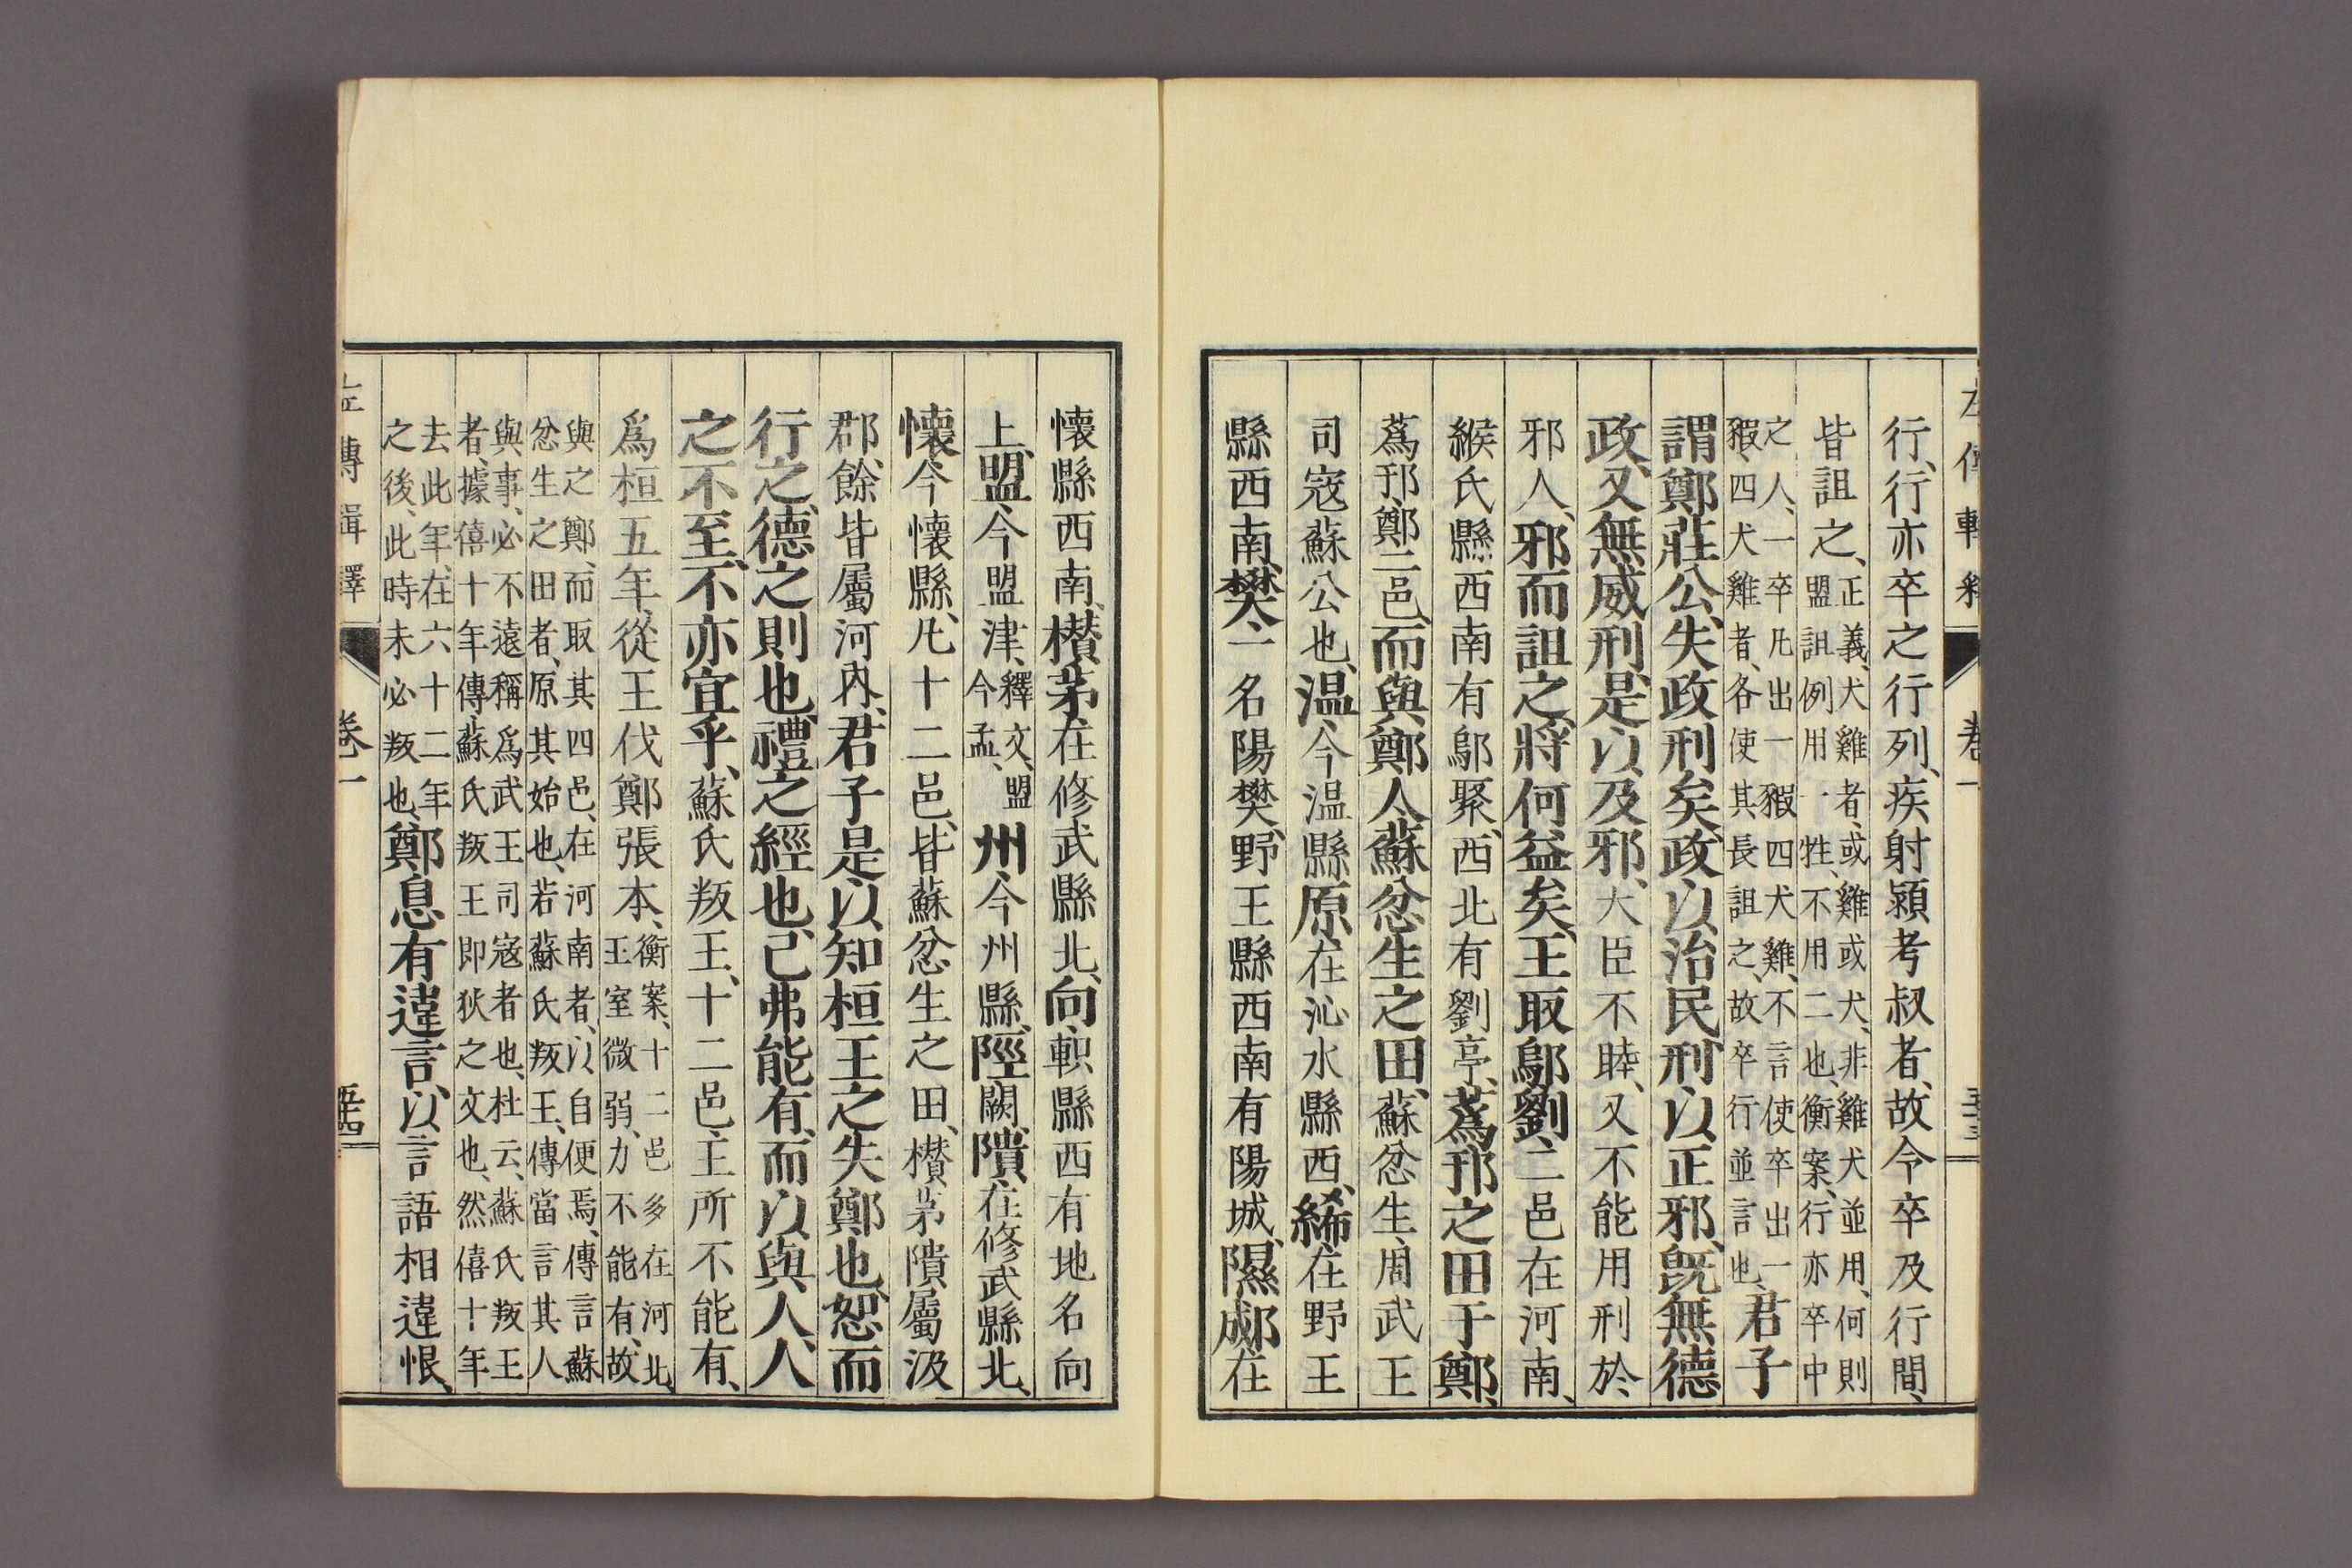 行、行亦卒之行列、疾射潁考叔者、故令卒及行間、
皆詛之、正義、犬雞者、或雞或犬、非雞犬並用、何則
盟詛例用一牲、不用二也、衡案、行亦卒中
之人、一卒凡出一豭四犬雞、不言使卒出一
豭、四犬雞者、各使其長詛之、故卒行並言也、君子
謂鄭莊公、失政刑矣、政以治民、刑以正邪、既無德
政、又無威刑、是以及邪、大臣不睦、又不能用刑於
邪人、邪而詛之、將何益矣、王取鄔劉、二邑在河南、
緱氏縣西南有鄔聚、西北有劉亭、蒍邘之田于鄭、
蒍邘、鄭二邑、而與鄭人、蘇忿生之田、蘇忿生、周武王
司寇蘇公也、温、今温縣原、在沁水縣西、絺、在野王
縣西南、樊、一名陽樊、野王縣西南有陽城、隰郕、在
懷縣西南、欑茅、在修武縣北、向、軹縣西有地名向
上、盟、今盟津、釋文、盟
今孟、州、今州縣、陘、闕、隤、在修武縣北、
懷、今懷縣、凡十二邑、皆蘇忿生之田、欑茅隤屬汲
郡、餘皆屬河內、君子是以知桓王之失鄭也、恕而
行之、德之則也、禮之經也、己弗能有、而以與人、人
之不至、不亦宜乎、蘇氏叛王、十二邑、王所不能有、
爲桓五年、從王伐鄭張本、衡案、十二邑多在河北、
王室微弱、力不能有、故
與之鄭、而取其四邑、在河南者、以自便焉、傳言蘇
忿生之田者、原其始也、若蘇氏叛王、傳當言其人
與事、必不遠稱爲武王司寇者也、杜云、蘇氏叛王
者、據僖十年傳、蘇氏叛王即狄之文也、然僖十年
去此年、在六十二年
之後、此時未必叛也、鄭息有違言、以言語相違恨、
左傳輯釋 卷一 五十四